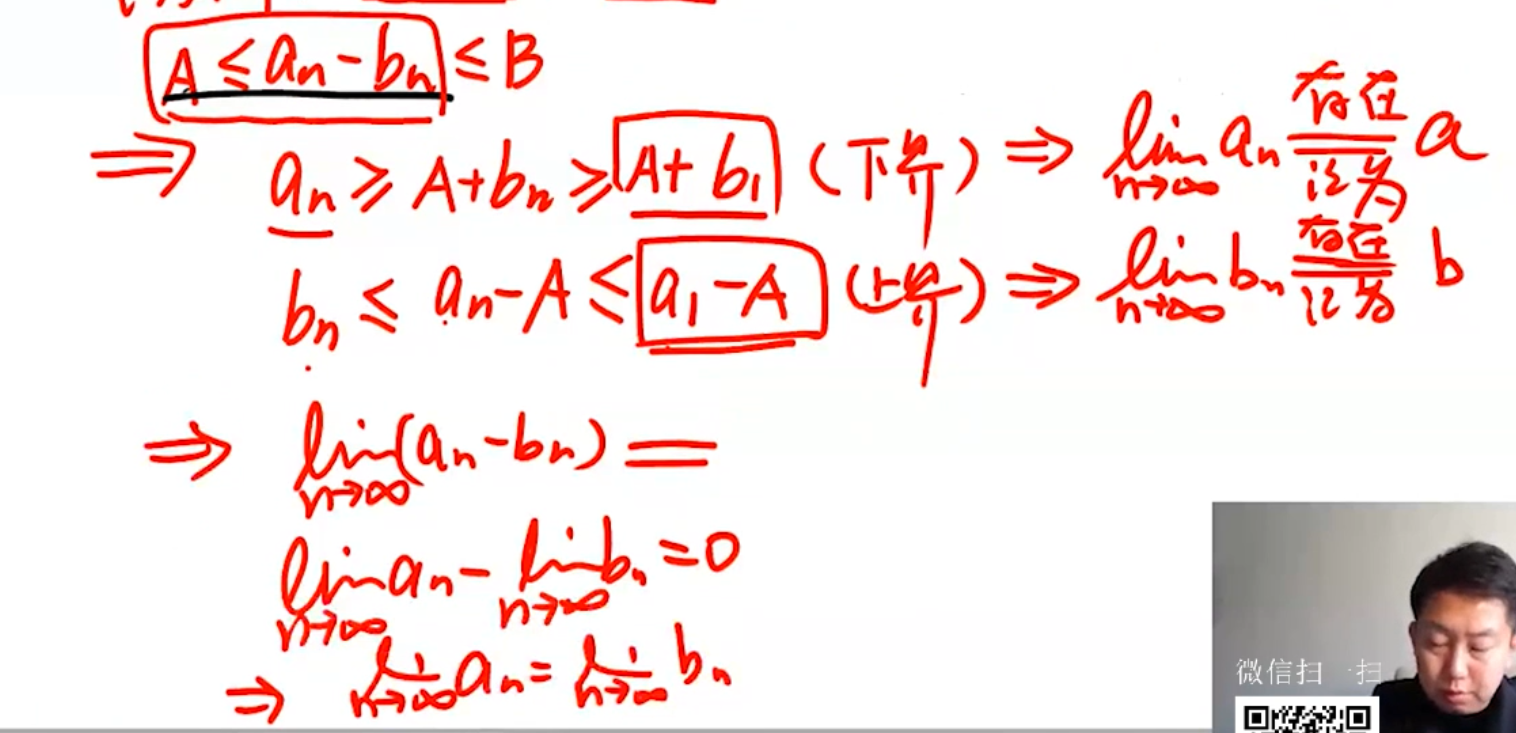 A ≤ aₙ - bₙ ≤ B
⇒ aₙ ≥ A + bₙ ≥ A + b₁ (下界) ⇒ lim n→∞ aₙ 存在 记为 a
bₙ ≤ aₙ - A ≤ a₁ - A (上界) ⇒ lim n→∞ bₙ 存在 记为 b
⇒ lim n→∞ (aₙ - bₙ) =
lim n→∞ aₙ - lim n→∞ bₙ = 0
⇒ lim n→∞ aₙ = lim n→∞ bₙ
微信扫一扫